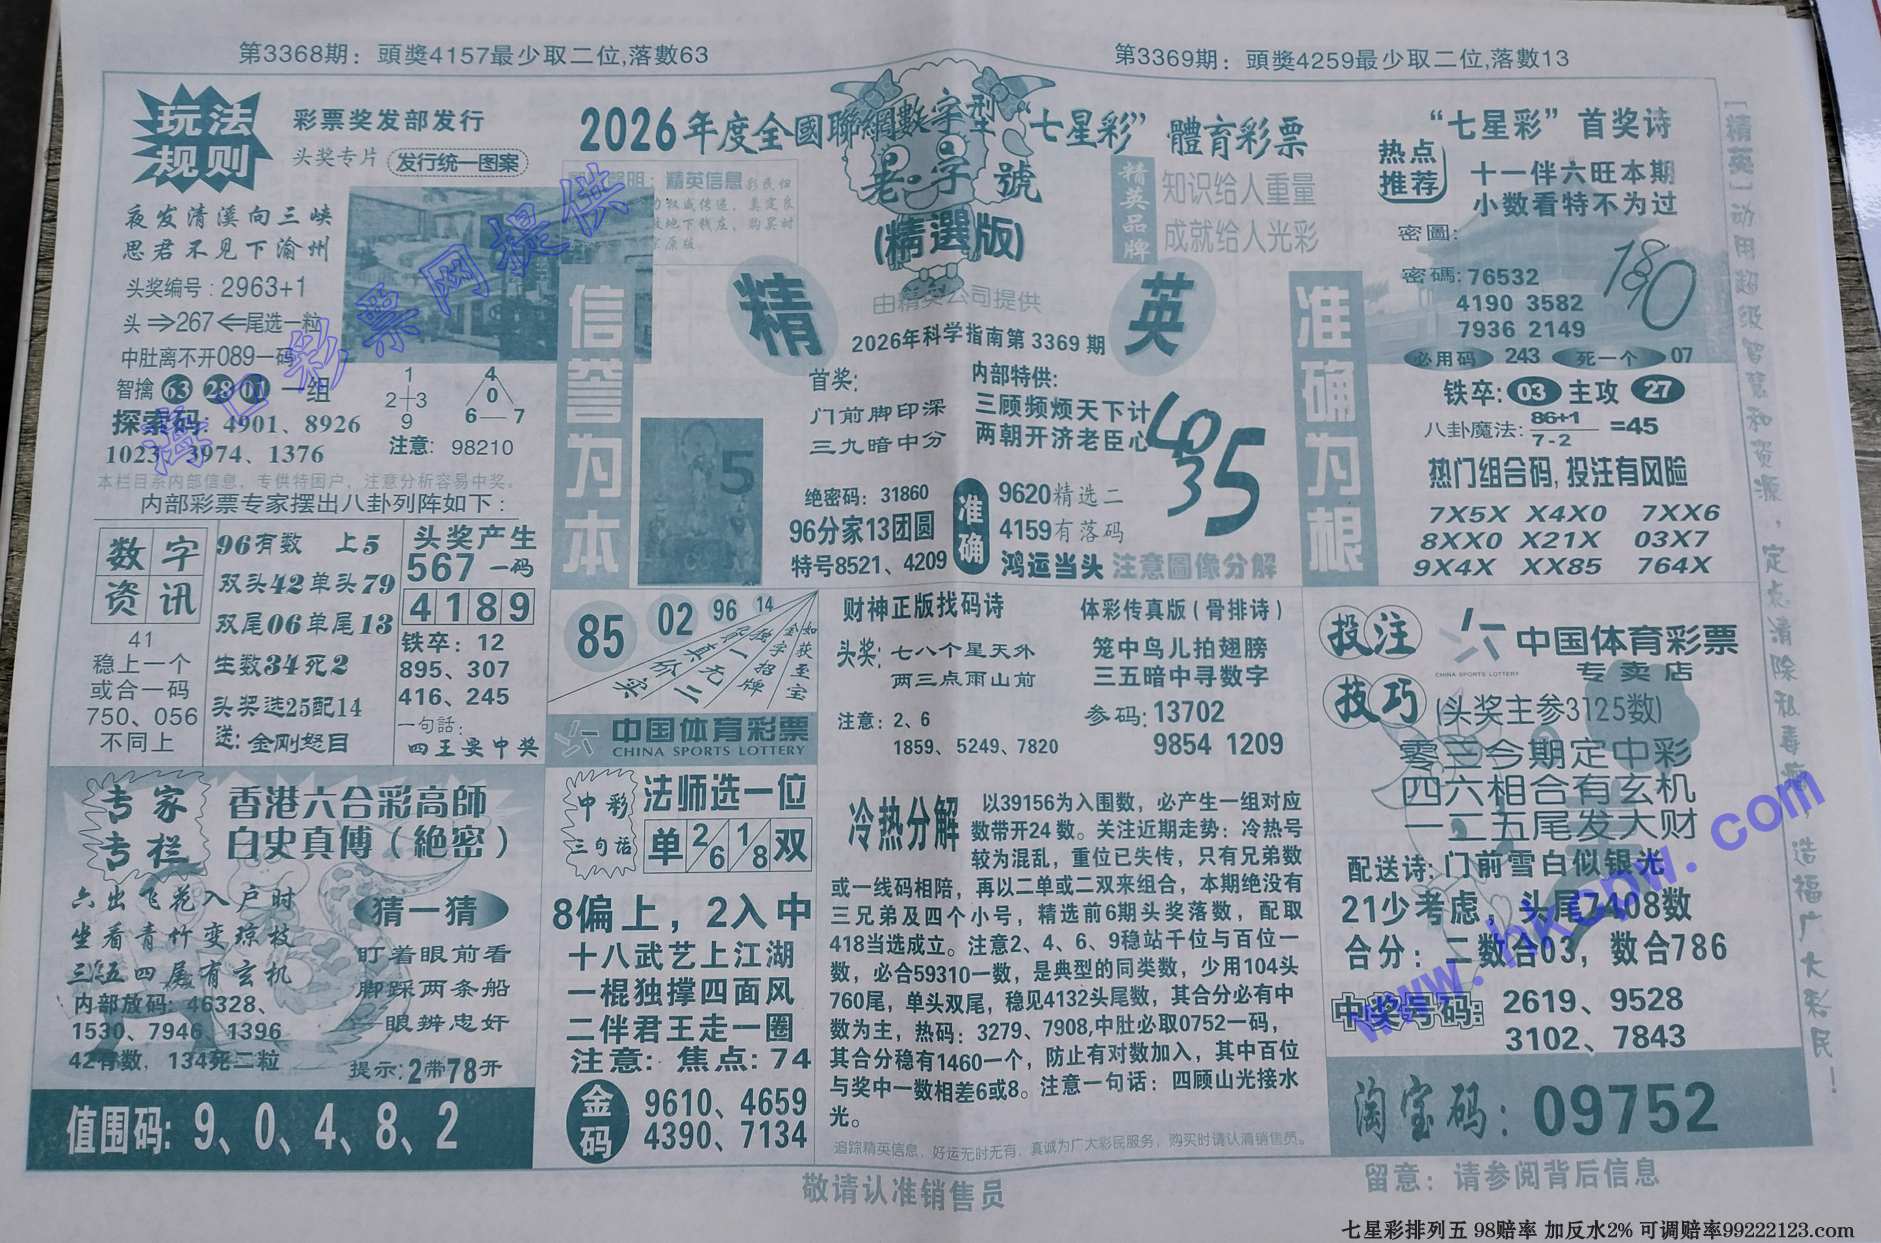 第3368期：頭獎4157最少取二位,落數63
第3369期：頭獎4259最少取二位,落數13
玩法
规则
彩票奖发部发行
头奖专片 发行统一图案
夜发清溪向三峡
思君不见下渝州
头奖编号：2963+1
头⇒267⇐尾选一粒
中肚离不开089一码
智擒 63 28 01 一组
探索码：4901、8926
1023、3974、1376
1
2 3
9
4
0
6 7
注意: 98210
本栏目系内部信息，专供特困户，注意分析容易中奖。
2026年度全國聯網數字型“七星彩”體育彩票
老字號
(精選版)
由精英公司提供
精英
2026年科学指南第3369期
精英品牌
知识给人重量
成就给人光彩
信誉为本
准确为根
首奖:
门前脚印深
三九暗中分
内部特供:
三顾频烦天下计
两朝开济老臣心
4035
5
绝密码：31860
96分家13团圆
特号8521、4209
准确
9620精选二
4159有落码
鸿运当头 注意圖像分解
“七星彩”首奖诗
热点
推荐
十一伴六旺本期
小数看特不为过
密圖:
密碼: 76532
4190 3582
7936 2149
必用码 243 死一个 07
铁卒: 03 主攻 27
八卦魔法: 86+1/7-2 =45
热门组合码, 投注有风险
7X5X X4X0 7XX6
8XX0 X21X 03X7
9X4X XX85 764X
[精英]动用超级智慧和资源，定点清除私毒瘤，造福广大彩民！
内部彩票专家摆出八卦列阵如下：
数字
资讯
41
稳上一个
或合一码
750、056
不同上
96有数 上5
双头42单头79
双尾06单尾13
生数34死2
头奖选25配14
送: 金刚怒目
头奖产生
567一码
4189
铁卒：12
895、307
416、245
一句話:
四王要中奖
85 02 96 14
真价实
独一无二
金字招牌
如获至宝
中国体育彩票
CHINA SPORTS LOTTERY
财神正版找码诗
头奖: 七八个星天外
两三点雨山前
注意：2、6
1859、5249、7820
体彩传真版（骨排诗）
笼中鸟儿拍翅膀
三五暗中寻数字
参码: 13702
9854 1209
投注
技巧
中国体育彩票
CHINA SPORTS LOTTERY
专卖店
(头奖主参3125数)
零三今期定中彩
四六相合有玄机
一二五尾发大财
配送诗: 门前雪白似银光
21少考虑，头尾7408数
合分：二数合03，数合786
中奖号码: 2619、9528
3102、7843
淘宝码：09752
专家
专栏
香港六合彩高師
白史真傅（絶密）
六出飞花入户时
坐看青竹变琼枝
三五四尾有玄机
内部放码: 46328、
1530、7946、1396
42有数，134死二粒
猜一猜
盯着眼前看
脚踩两条船
一眼辨忠奸
提示: 2带78开
值围码: 9、0、4、8、2
中彩
三句话
法师选一位
单 2/6 1/8 双
8偏上，2入中
十八武艺上江湖
一棍独撑四面风
二伴君王走一圈
注意：焦点: 74
金码
9610、4659
4390、7134
冷热分解
以39156为入围数，必产生一组对应
数带开24数。关注近期走势：冷热号
较为混乱，重位已失传，只有兄弟数
或一线码相陪，再以二单或二双来组合，本期绝没有
三兄弟及四个小号，精选前6期头奖落数，配取
418当选成立。注意2、4、6、9稳站千位与百位一
数，必合59310一数，是典型的同类数，少用104头
760尾，单头双尾，稳见4132头尾数，其合分必有中
数为主，热码：3279、7908,中肚必取0752一码，
其合分稳有1460一个，防止有对数加入，其中百位
与奖中一数相差6或8。注意一句话：四顾山光接水
光。
追踪精英信息，好运无时无有，真诚为广大彩民服务，购买时请认清销售员。
敬请认准销售员
留意：请参阅背后信息
彩票网提供
www.hkcpw.com
七星彩排列五 98赔率 加反水2% 可调赔率99222123.com